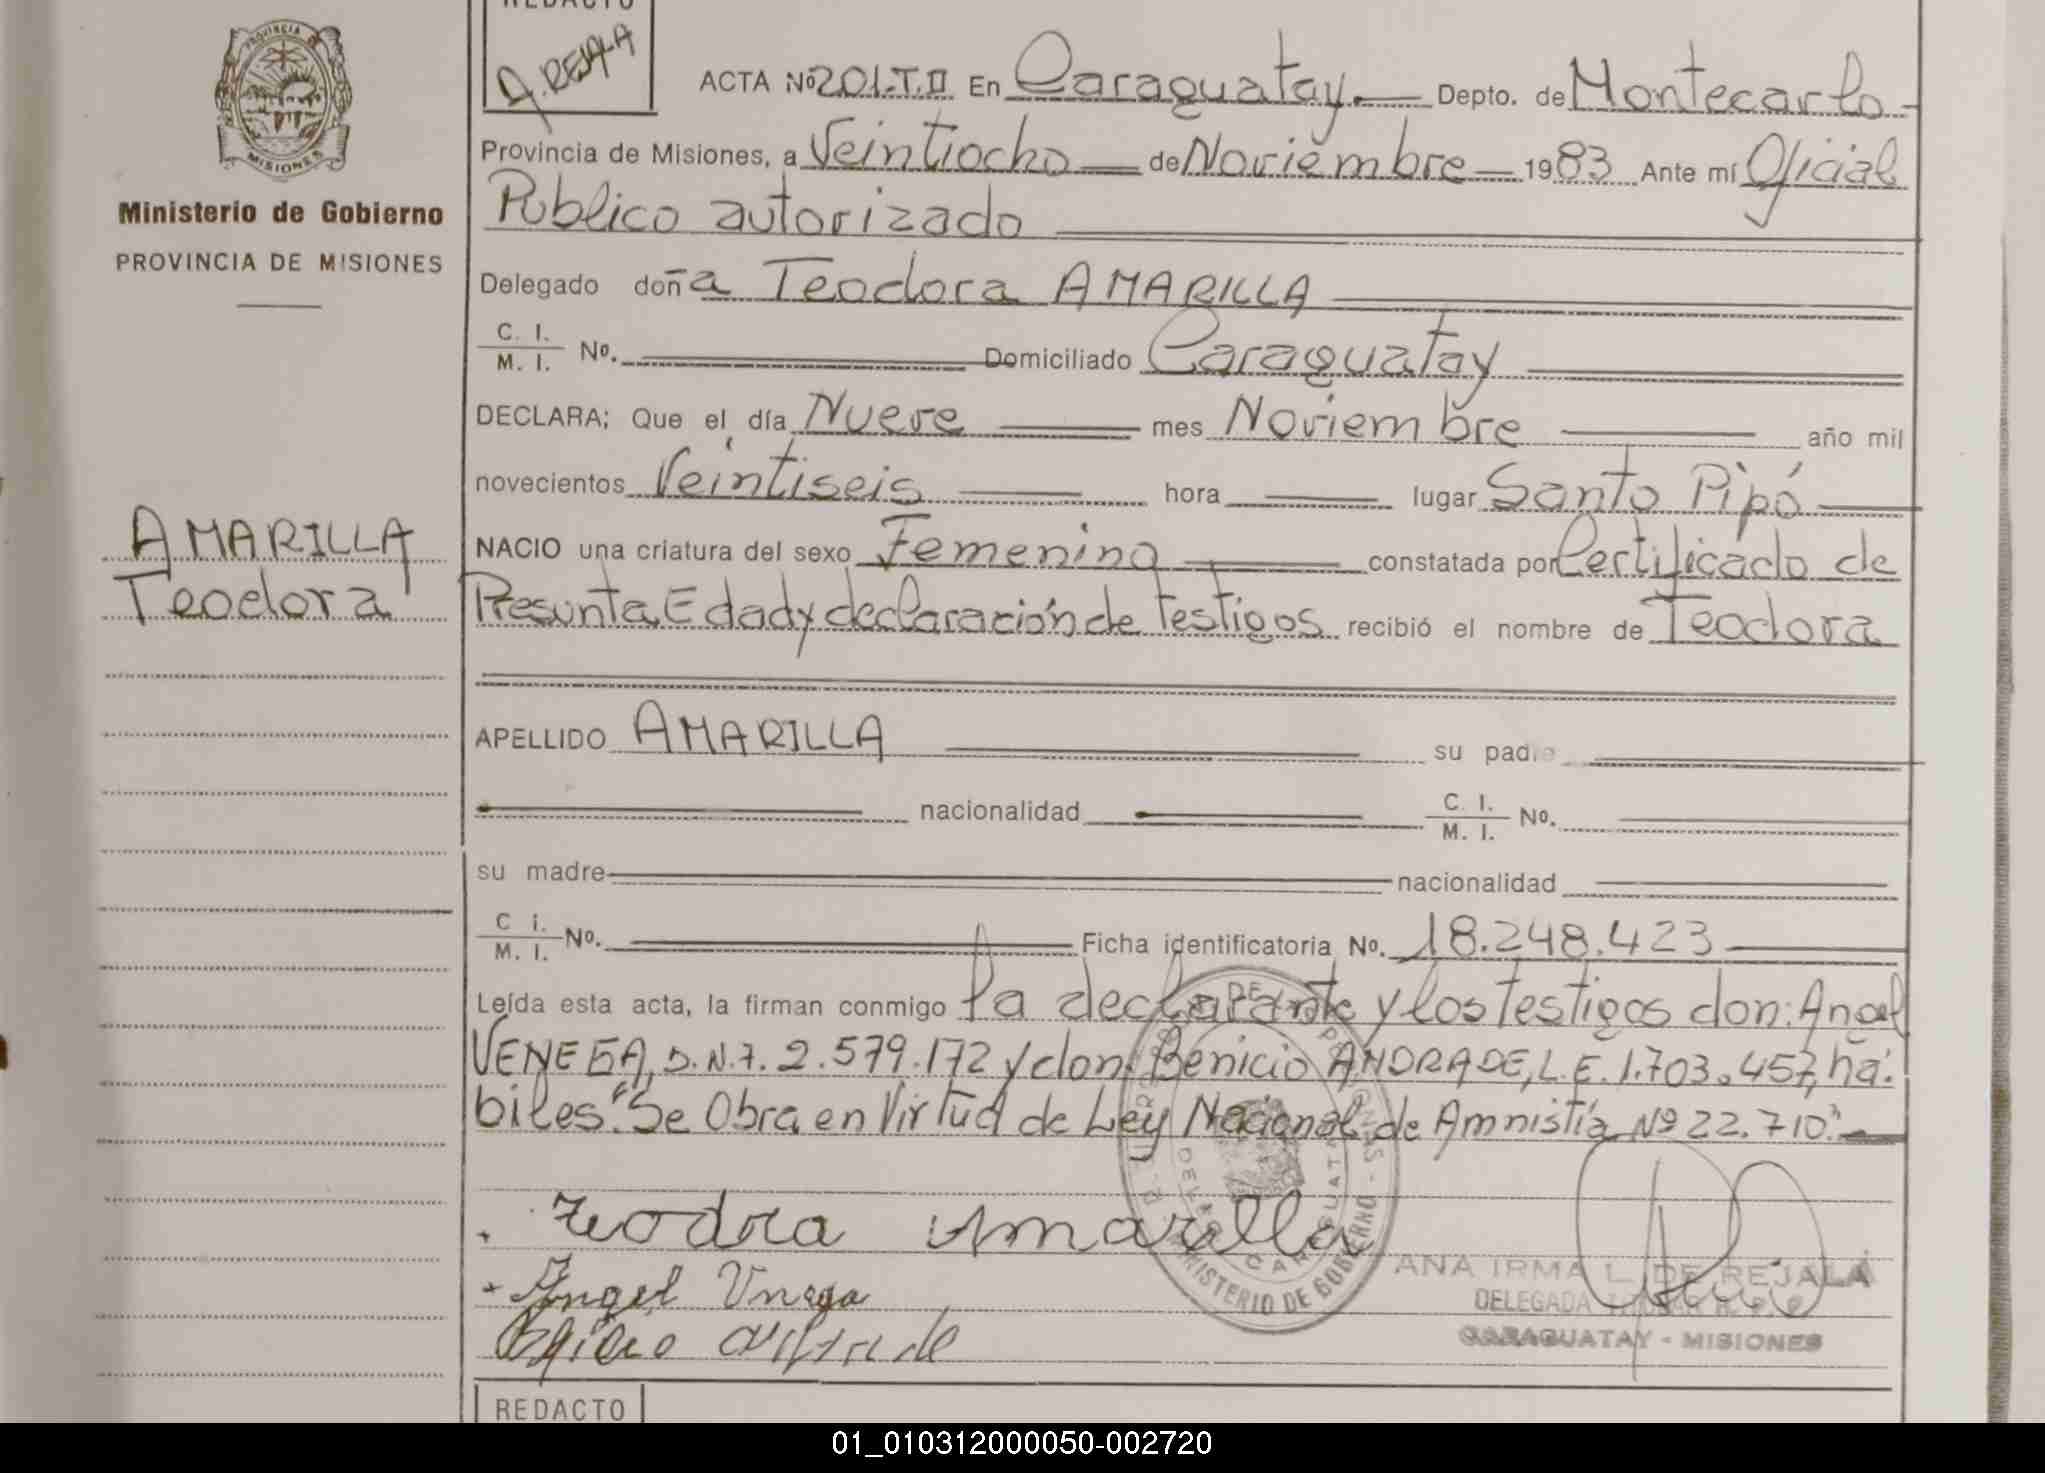 REDACTO
A. REJALA
PROVINCIA DE
MISIONES
Ministerio de Gobierno
PROVINCIA DE MISIONES
AMARILLA
Teodora
ACTA Nº 201-T.II En Caraguatay.- Depto. de Montecarlo
Provincia de Misiones, a Veintiocho de Noviembre 1983 Ante mí Oficial
Público autorizado
Delegado doña Teodora AMARILLA
C. I. / M. I. Nº. Domiciliado Caraguatay
DECLARA; Que el día Nueve mes Noviembre año mil
novecientos Veintiseis hora lugar Santo Pipó
NACIO una criatura del sexo Femenino constatada por Certificado de
Presunta Edad y declaración de testigos recibió el nombre de Teodora
APELLIDO AMARILLA su padre
nacionalidad C. I. / M. I. Nº.
su madre nacionalidad
C. I. / M. I. Nº. Ficha identificatoria Nº. 18.248.423
Leída esta acta, la firman conmigo la declarante y los testigos don: Angel
VENEGA, D.N.I. 2.579.172 y don: Benicio ANDRADE, L.E. 1.703.457, há-
biles. "Se Obra en Virtud de Ley Nacional de Amnistía Nº 22.710"
Teodora Amarilla
Angel Venega
MINISTERIO DE GOBIERNO
ANA IRMA L. DE REJALA
DELEGADA TITULAR R. P. P.
CARAGUATAY - MISIONES
REDACTO
01_010312000050-002720